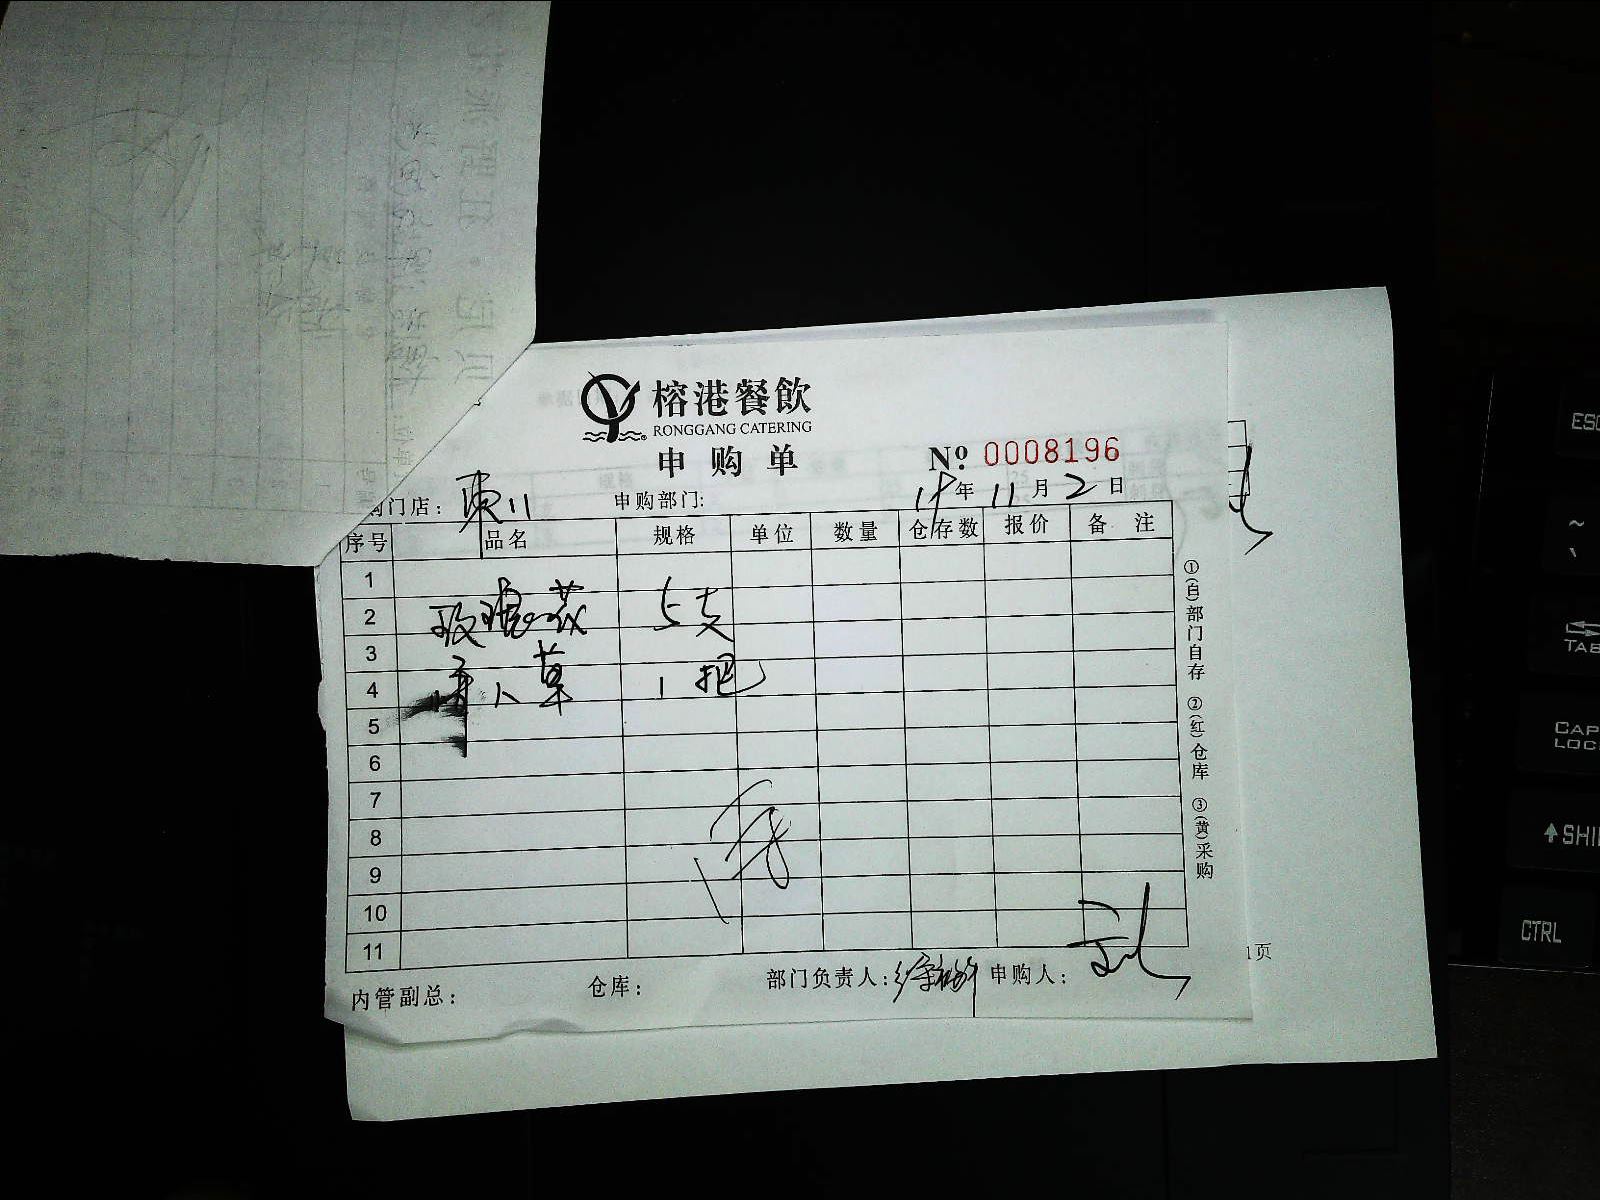 榕港餐飲
RONGGANG CATERING
申购单
Nº 0008196
门店： 東川 申购部门: 年 11 月 2 日
序号 品名 规格 单位 数量 仓存数 报价 备 注
1
2 玫瑰花 5支
3
4 草 1把
5
6
7
8
9
10
11
①(白)部门自存 ②(红)仓库 ③(黄)采购
内管副总： 仓库： 部门负责人： 申购人：
1页
ESC
~
、
TAB
CAPS
LOCK
SHI
CTRL